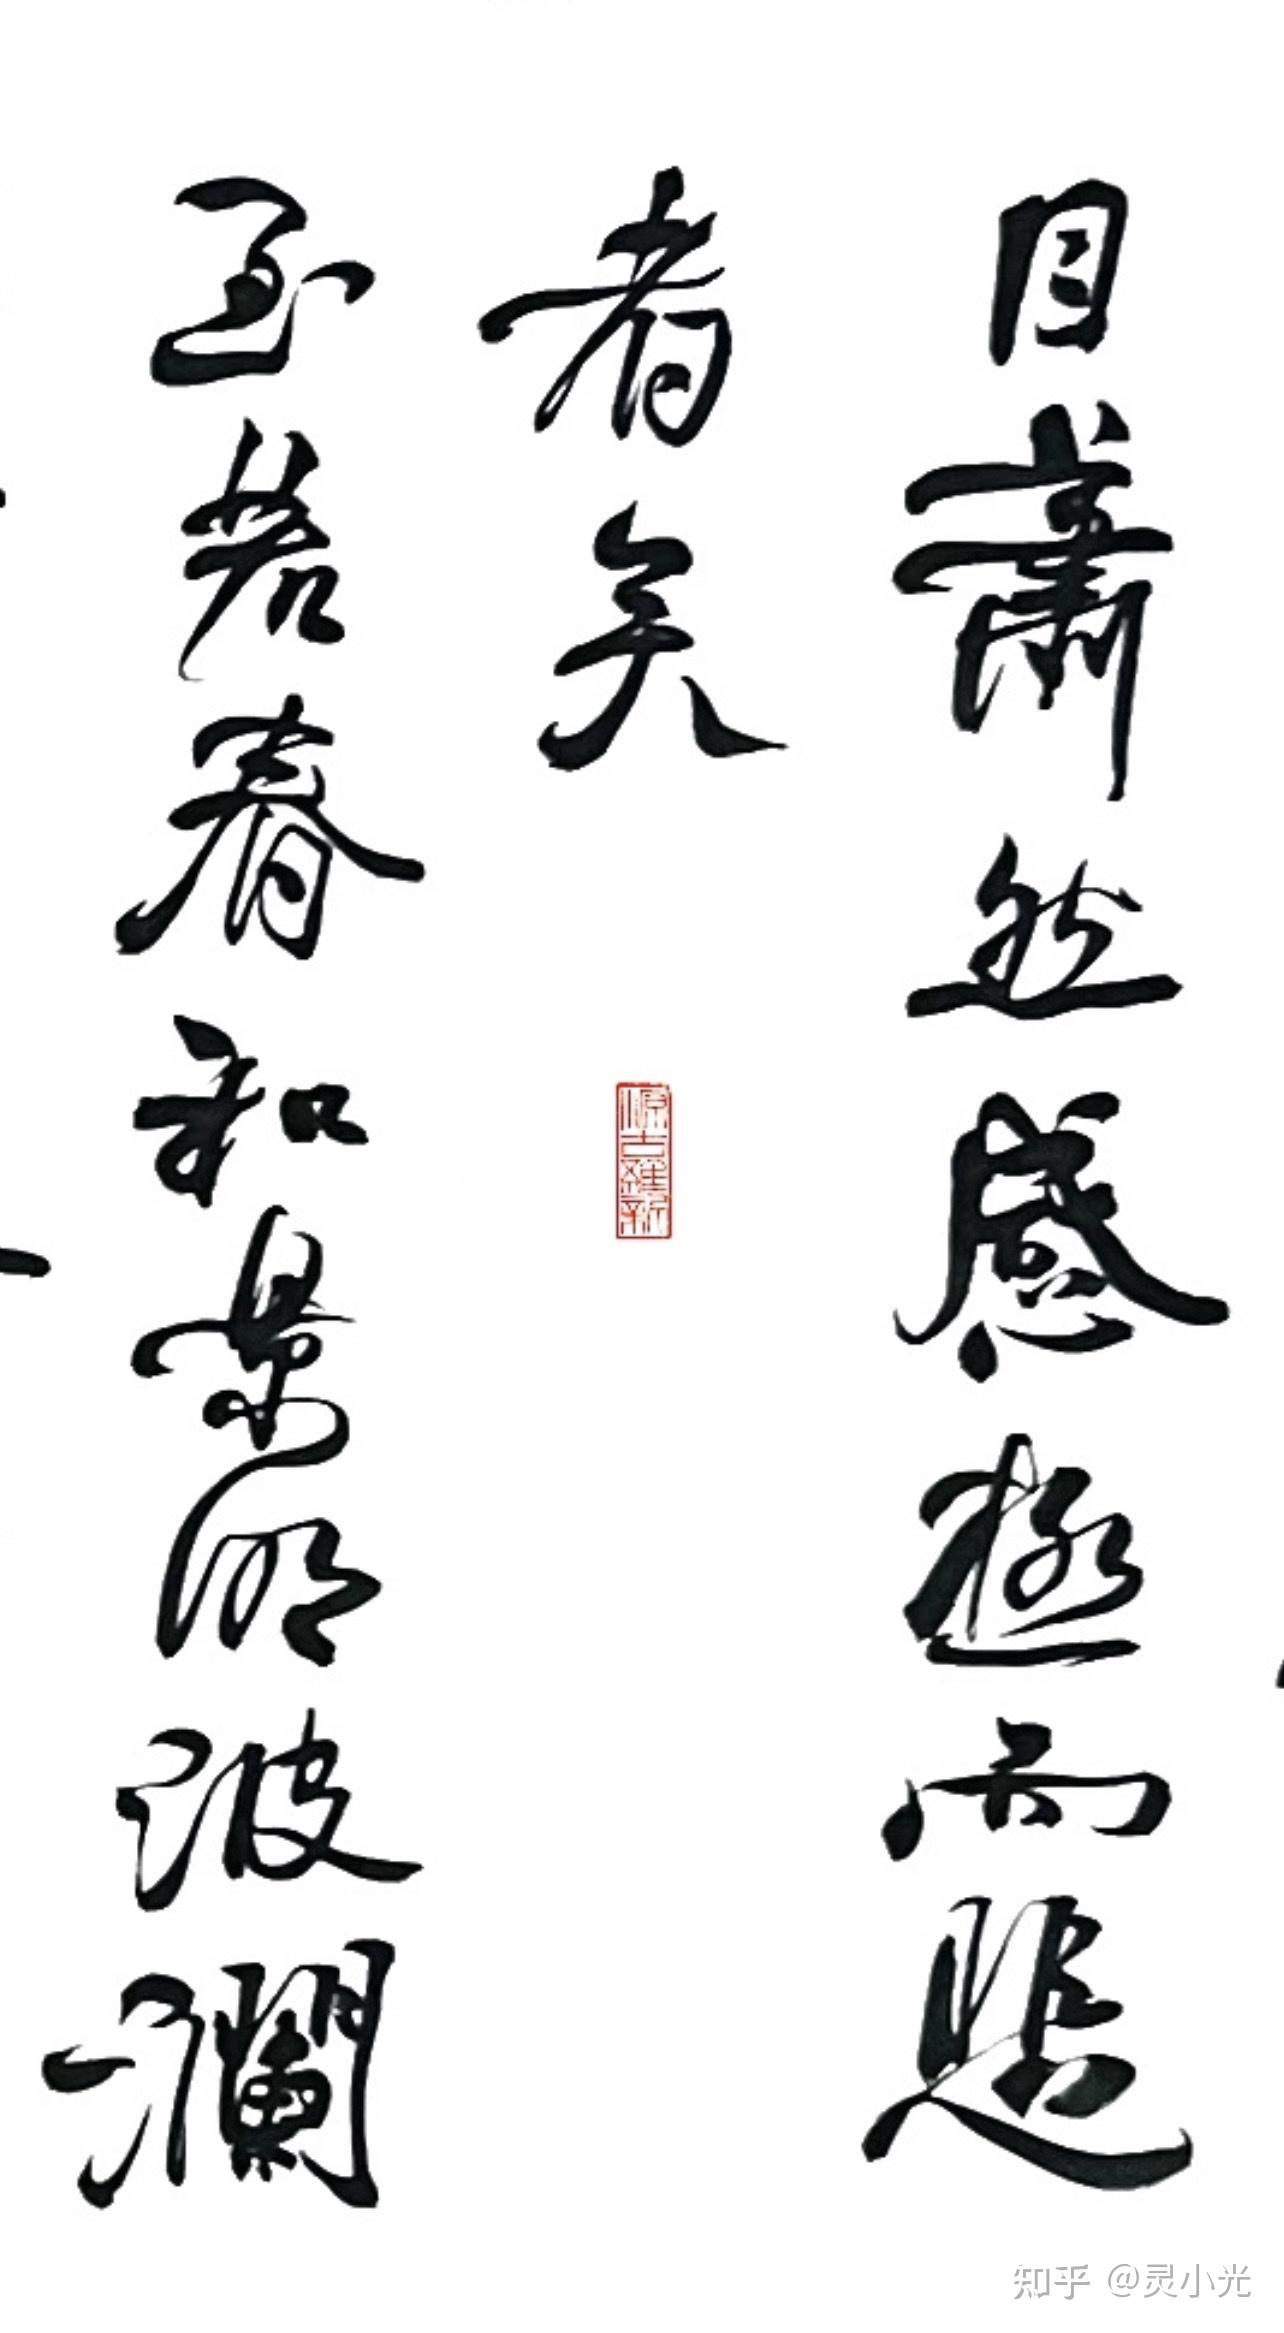 目蕭然感極而悲
者矣
至若春和景明波瀾
知乎 @灵小光